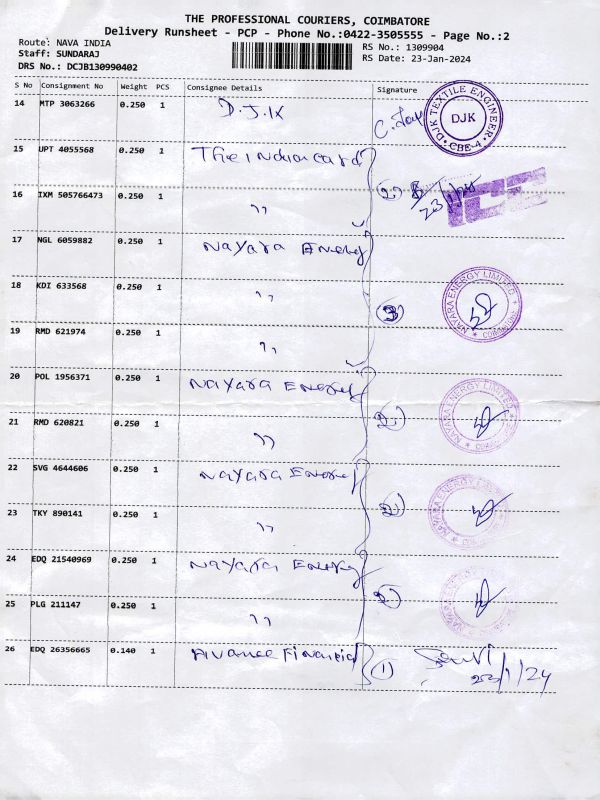 THE PROFESSIONAL COURIERS, COIMBATORE
Delivery Runsheet - PCP - Phone No.:0422-3505555 - Page No.:2
Route: NAVA INDIA
Staff: SUNDARAJ
DRS No.: DCJB130990402
RS No.: 1309904
RS Date: 23-Jan-2024
S No Consignment No Weight PCS Consignee Details Signature
14 MTP 3063266 0.250 1 D.J.K
DJK TEXTILE ENGINEER DJK CBE-4
15 UPT 4055568 0.250 1 The Indian Card
16 IXM 505766473 0.250 1 ,, 2) 23/1/24
17 NGL 6059882 0.250 1 Nayara Energy
18 KDI 633568 0.250 1 ,, 3) NAYARA ENERGY LIMITED
19 RMD 621974 0.250 1 ,,
20 POL 1956371 0.250 1 Nayara Energy 2) NAYARA ENERGY LIMITED
21 RMD 620821 0.250 1 ,,
22 SVG 4644606 0.250 1 Nayara Energy 2) NAYARA ENERGY LIMITED
23 TKY 890141 0.250 1 ,,
24 EDQ 21540969 0.250 1 Nayara Energy 2) NAYARA ENERGY LIMITED
25 PLG 211147 0.250 1 ,,
26 EDQ 26356665 0.140 1 1 23/1/24